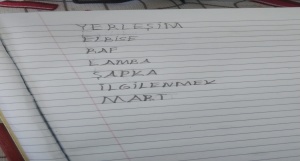 YERLEŞİM
ELBİSE
RAF
LAMBA
ŞAPKA
İLGİLENMEK
MART